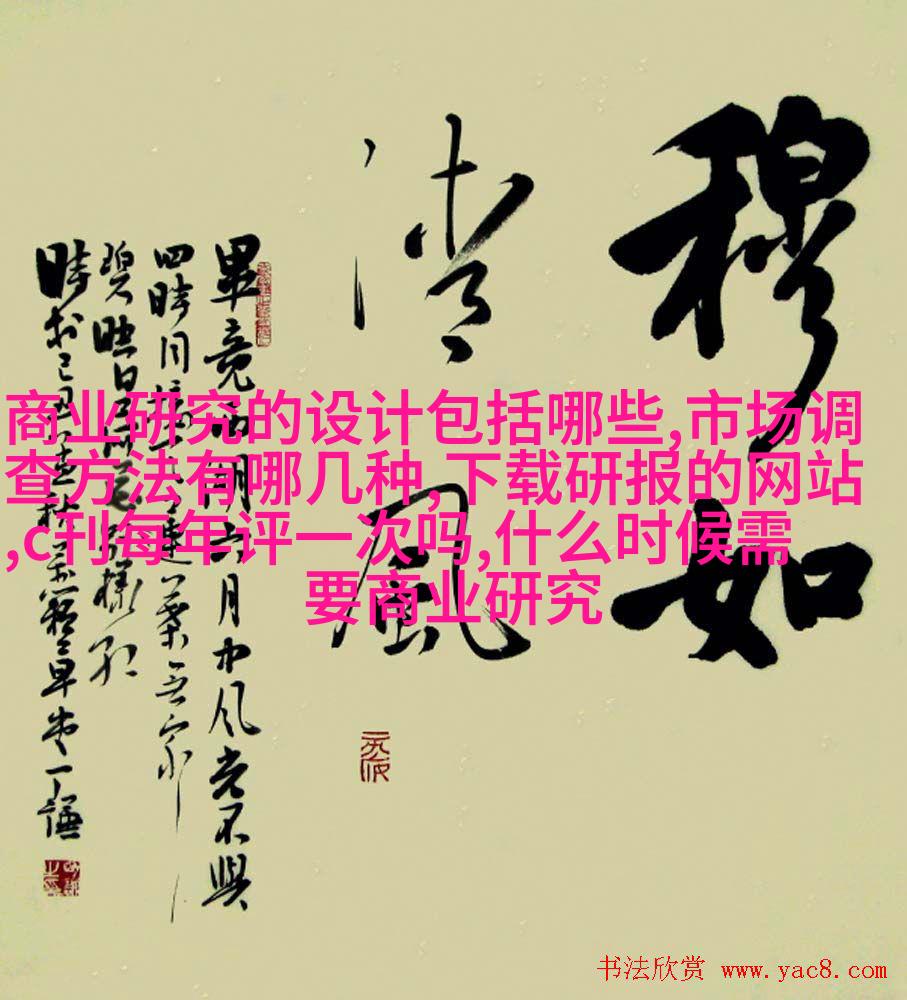 穆如
清風
畢竟西湖六月中風光不與
四時同接天蓮葉無窮
碧映日荷花別樣紅
商业研究的设计包括哪些,市场调
查方法有哪几种,下载研报的网站
,c刊每年评一次吗,什么时候需
要商业研究
书法欣赏 www.yac8.com